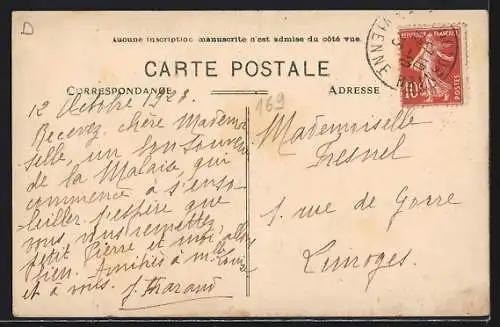 D
Aucune inscription manuscrite n'est admise du côté vue.
CARTE POSTALE
CORRESPONDANCE
ADRESSE
169
REPUBLIQUE FRANÇAISE
10
POSTES
VIENNE
12 Octobre
Recevez, chère Mademoi-
selle, un bon souvenir
de la Malaise, qui
commence à s'enso-
leiller. J'espère que
vous vous remettez,
petit Pierre et moi, allons
bien. Amitiés à M. Louis
et à vous. J. Tharaud
Mademoiselle
Fresnel
1 rue de Gorre
Limoges.